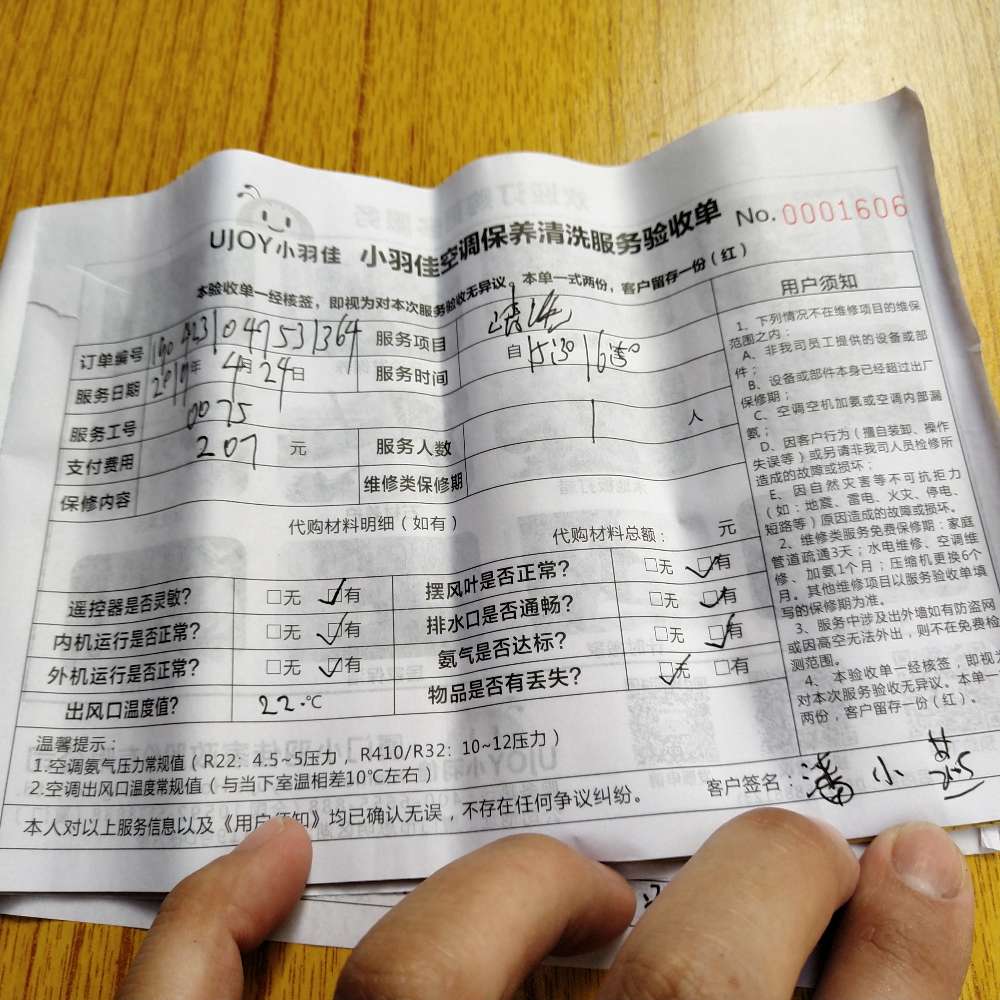 UJOY小羽佳 小羽佳空调保养清洗服务验收单 No. 0001606
本验收单一经核签，即视为对本次服务验收无异议，本单一式两份，客户留存一份（红）
订单编号 1904231047531364 服务项目 清洗
服务日期 2019年4月24日 服务时间 自15:30 16:50
服务工号 0075
支付费用 207 元 服务人数 1 人
保修内容 维修类保修期
代购材料明细（如有） 代购材料总额： 元
遥控器是否灵敏？ □无 ☑有 摆风叶是否正常？ □无 ☑有
内机运行是否正常？ □无 ☑有 排水口是否通畅？ □无 ☑有
外机运行是否正常？ □无 ☑有 氨气是否达标？ □无 ☑有
出风口温度值？ 22.℃ 物品是否有丢失？ ☑无 □有
温馨提示：
1.空调氨气压力常规值（R22：4.5~5压力，R410/R32：10~12压力）
2.空调出风口温度常规值（与当下室温相差10℃左右）
客户签名：潘小
本人对以上服务信息以及《用户须知》均已确认无误，不存在任何争议纠纷。
用户须知
1、下列情况不在维修项目的维保
范围之内：
A、非我司员工提供的设备或部
件；
B、设备或部件本身已经超过出厂
保修期；
C、空调空机加氨或空调内部漏
氨；
D、因客户行为（擅自装卸、操作
失误等）或另请非我司人员检修所
造成的故障或损坏；
E、因自然灾害等不可抗拒力
（如：地震、雷电、火灾、停电、
短路等）原因造成的故障或损坏。
2、维修类服务免费保修期：家庭
管道疏通3天；水电维修、空调维
修、加氨1个月；压缩机更换6个
月。其他维修项目以服务验收单填
写的保修期为准。
3、服务中涉及出外墙如有防盗网
或因高空无法外出，则不在免费检
测范围。
4、本验收单一经核签，即视为
对本次服务验收无异议。本单一
两份，客户留存一份（红）。